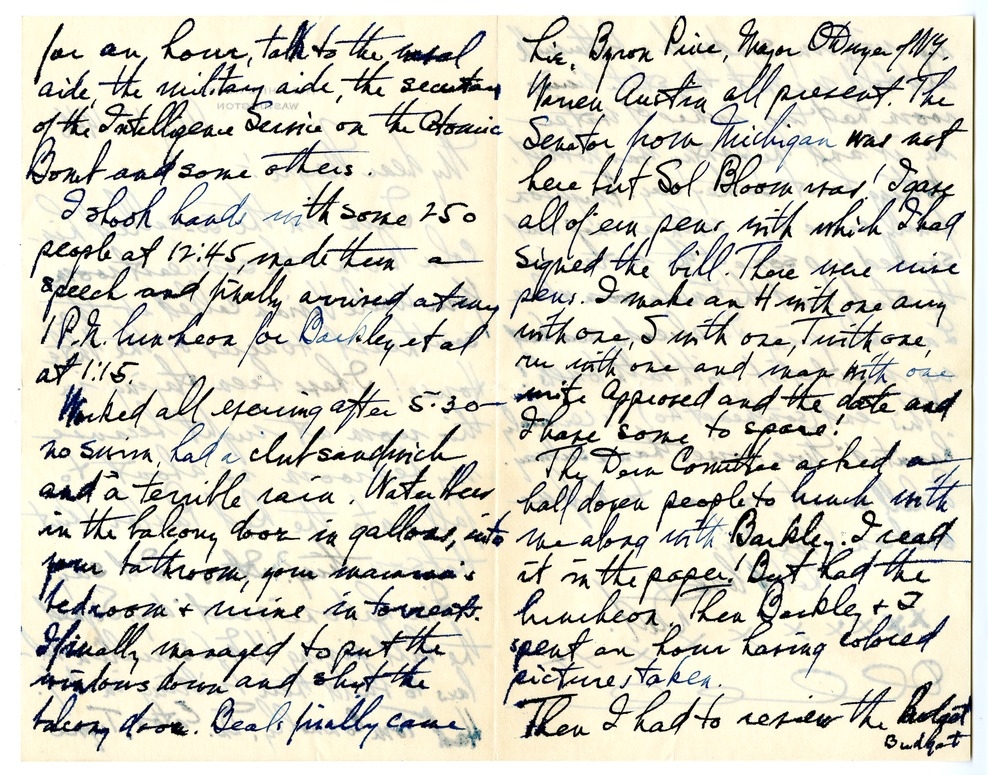 for an hour, talk to the naval
aide, the military aide, the secretary
of the Intelligence Service on the Atomic
Bomb and some others.
I shook hands with some 250
people at 12:45, made them a
speech and finally arrived at my
1 P.M. luncheon for Barkley et al
at 1:15.
Worked all evening after 5:30
no swim, had a club sandwich
and a terrible rain. Water blew
in the balcony door in gallons, into
your bathroom, your mamma's
bedroom & mine in torrents.
I finally managed to put the
windows down and shut the
balcony door. Deals finally came
Lie, Byron Price, Mayor O'Dwyer of N.Y.
Warren Austin all present. The
Senator from Michigan was not
here but Sol Bloom was! I gave
all of em pens, with which I had
signed the bill. There were nine
pens. I make an H with one arry
with one, S with one, T with one,
ru with one and man with one
write Approved and the date and
I have some to spare!
The Dem Comittee asked a
half dozen people to lunch with
me along with Barkley. I read
it in the paper! But had the
luncheon. Then Barkley & I
spent an hour having colored
pictures taken.
Then I had to review the Budget
Budget